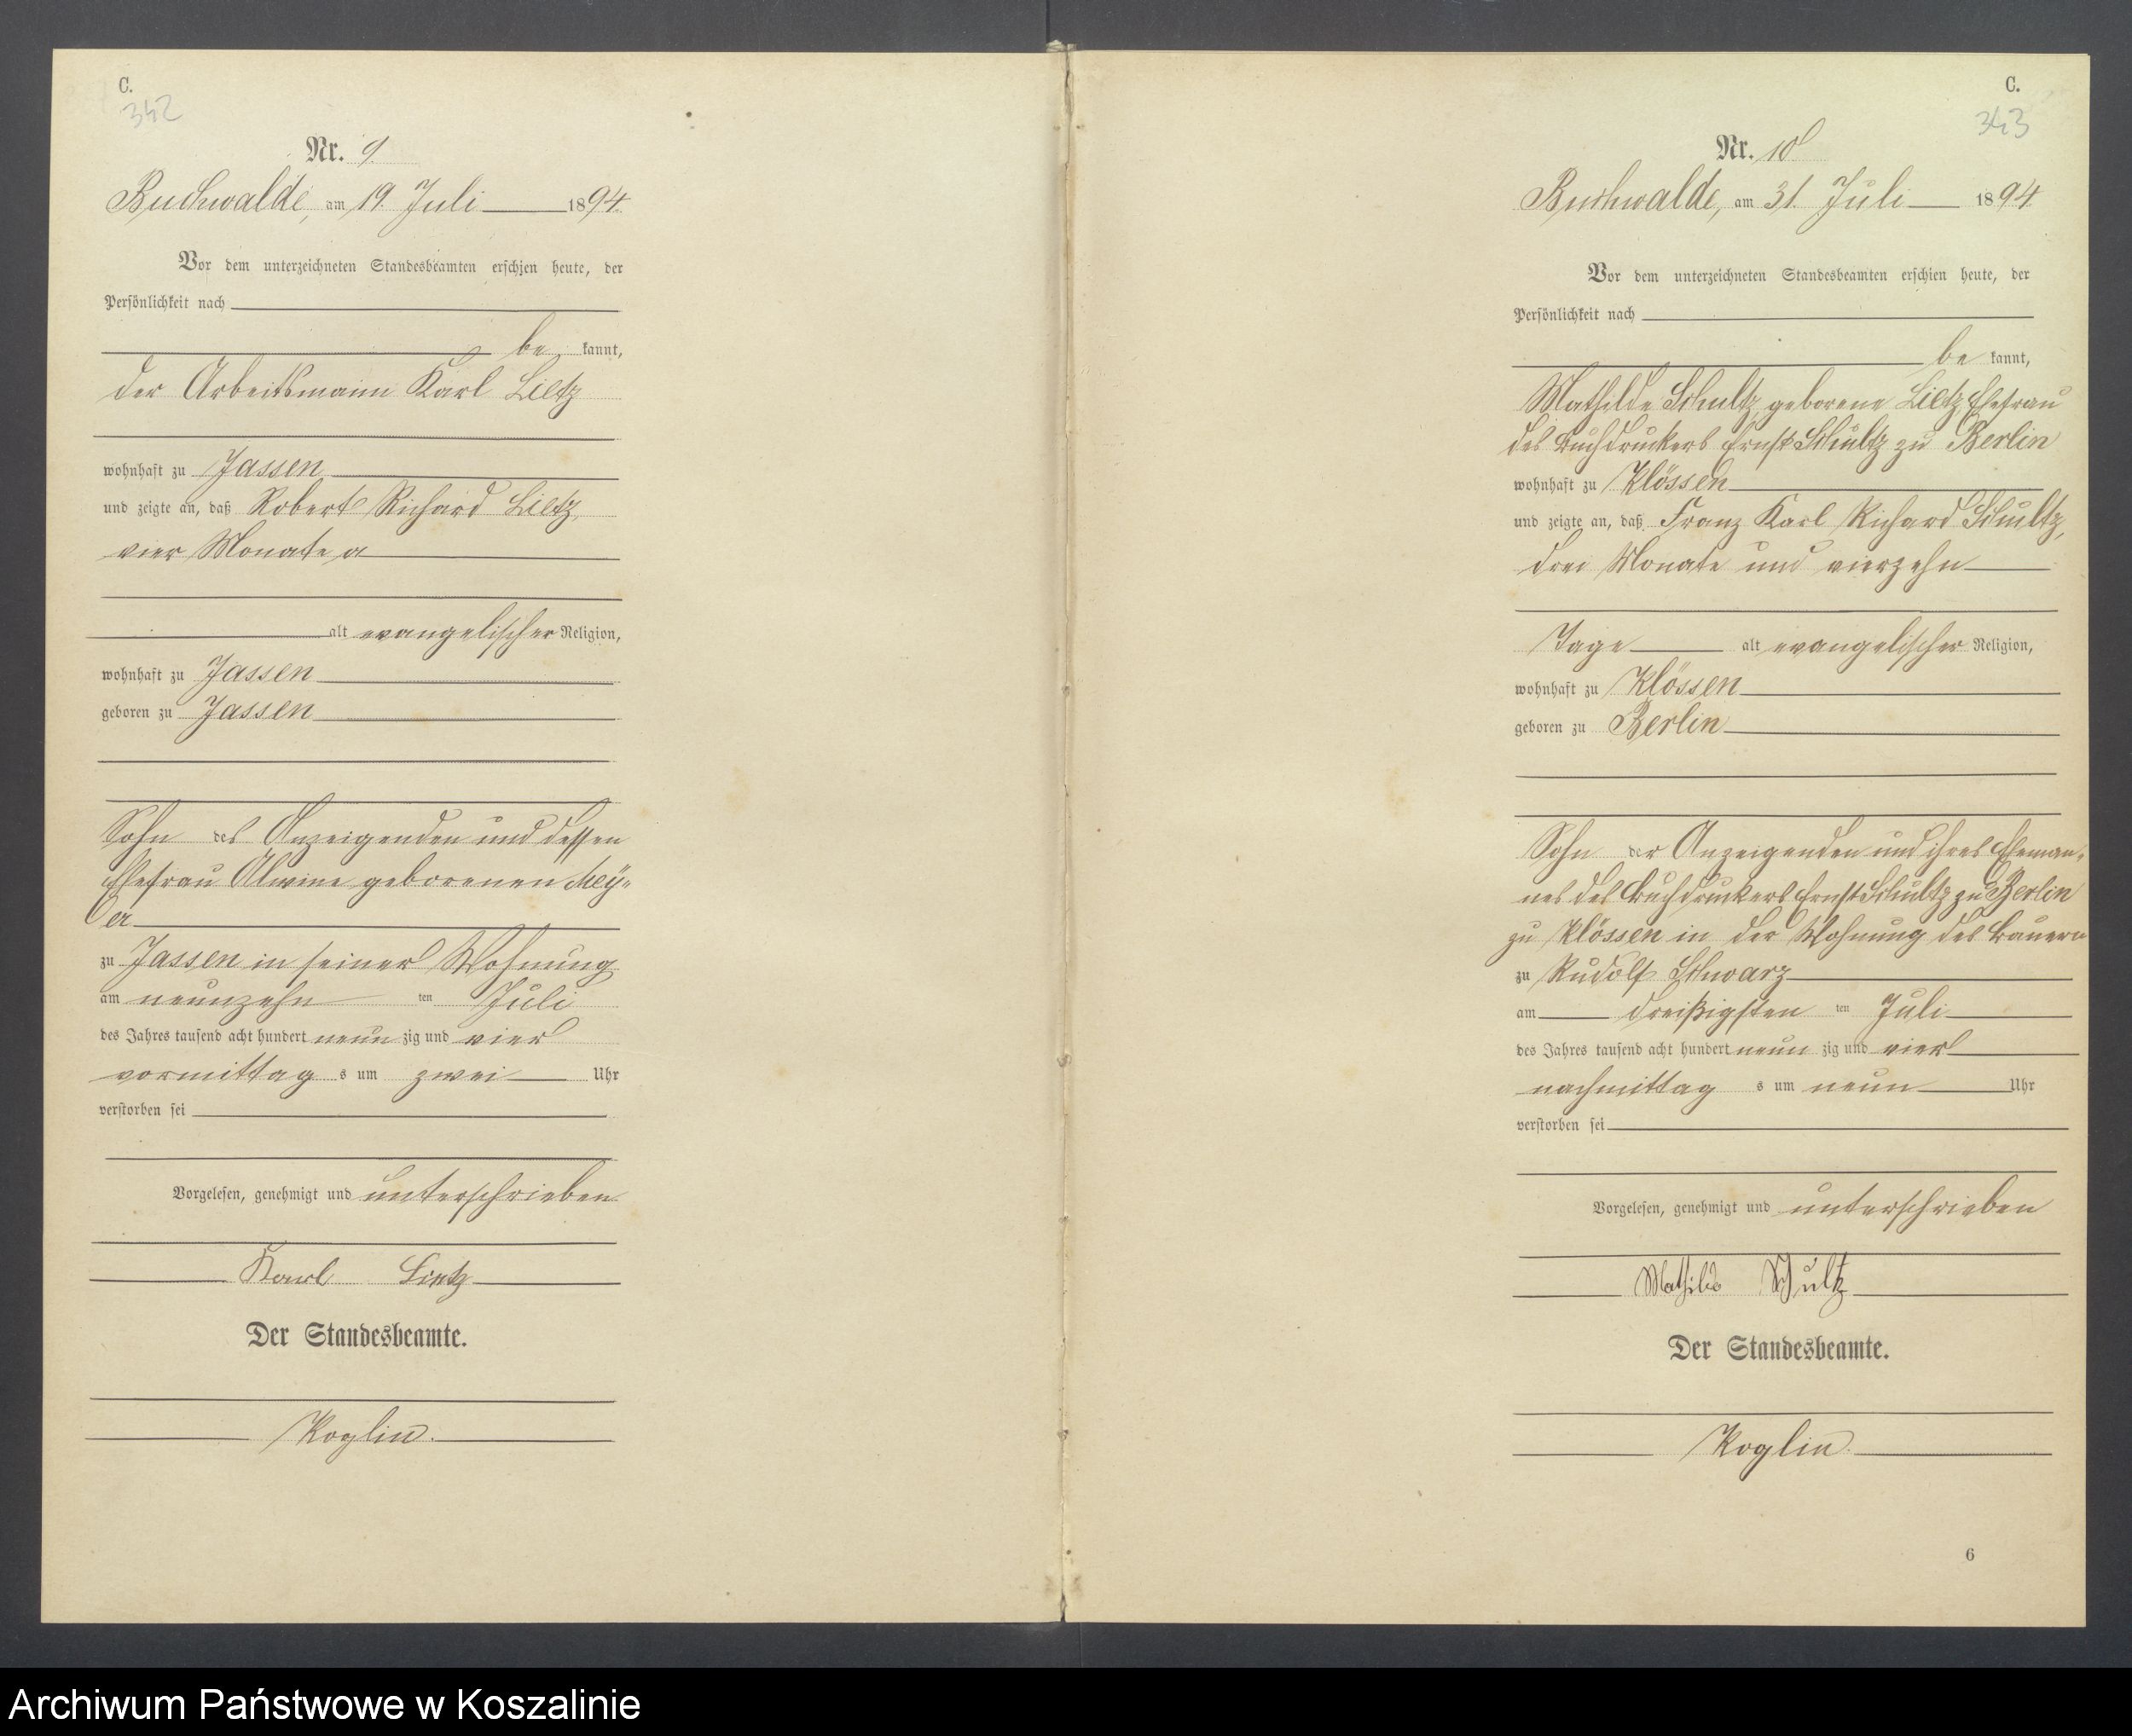 C.
342
Nr. 9.
Buchwalde, am 19. Juli 1894.
Vor dem unterzeichneten Standesbeamten erschien heute, der
Persönlichkeit nach
be kannt,
der Arbeitsmann Karl Lietz
wohnhaft zu Jassen
und zeigte an, daß Robert Richard Lietz,
vier Monate
alt evangelischer Religion,
wohnhaft zu Jassen
geboren zu Jassen
Sohn des Anzeigenden und dessen
Ehefrau Alwine geborenen Mey=
er
zu Jassen in seiner Wohnung
am neunzehn ten Juli
des Jahres tausend acht hundert neun zig und vier
vormittag s um zwei Uhr
verstorben sei
Vorgelesen, genehmigt und unterschrieben
Karl Lietz
Der Standesbeamte.
Koglin.
C.
343
Nr. 10
Buchwalde, am 31. Juli 1894.
Vor dem unterzeichneten Standesbeamten erschien heute, der
Persönlichkeit nach
be kannt,
Mathilde Schultz geborene Lietz Ehefrau
des Buchdruckers Ernst Schultz zu Berlin
wohnhaft zu Klössen
und zeigte an, daß Franz Karl Richard Schultz,
drei Monate und vierzehn
Tage alt evangelischer Religion,
wohnhaft zu Klössen
geboren zu Berlin
Sohn der Anzeigenden und ihres Eheman=
nes des Buchdruckers Ernst Schultz zu Berlin
zu Klössen in der Wohnung des Bauern
zu Rudolf Schwarz
am dreißigsten ten Juli
des Jahres tausend acht hundert neun zig und vier
nachmittag s um neun Uhr
verstorben sei
Vorgelesen, genehmigt und unterschrieben
Mathilde Schultz
Der Standesbeamte.
Koglin.
6
Archiwum Państwowe w Koszalinie